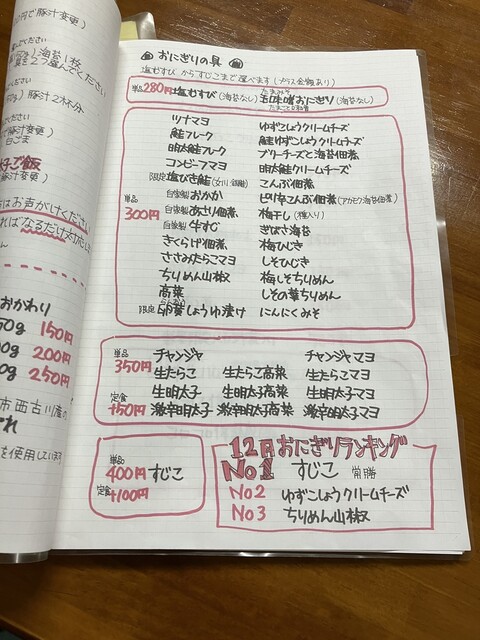 円で豚汁変更)
ください
海苔1枚
具を2つ選んでください
ください
豚汁2杯分
ください
で豚汁変更)
白ごま
ご飯
豚汁変更)
はお声がけください
ればなるだけ対応い
おかわり
50g 150円
00g 200円
00g 250円
市西古川産の
を使用しています
おにぎりの具
塩むすびからすじこまで選べます(プラス金額あり)
単品280円 塩むすび(海苔なし) 玉味噌おにぎり(海苔なし)
たまみそ
たまごと味噌
単品
300円
ツナマヨ ゆずこしょうクリームチーズ
鮭フレーク 鮭ゆずこしょうクリームチーズ
明太鮭フレーク ブリーチーズと海苔佃煮
コンビーフマヨ 明太鮭クリームチーズ
限定 塩ひき鮭(女川・銀鮭) こんぶ佃煮
自家製 おかか ピリ辛こんぶ佃煮(アカモク海苔佃煮)
自家製 あさり佃煮 梅干し(種入り)
自家製 牛すじ ぎばさ海苔
きくらげ佃煮 梅ひじき
ささみたらこマヨ しそひじき
ちりめん山椒 梅しそちりめん
高菜 しその葉ちりめん
限定 卵黄しょうゆ漬け にんにくみそ
単品
350円
定食
+50円
チャンジャ チャンジャマヨ
生たらこ 生たらこ高菜 生たらこマヨ
生明太子 生明太子高菜 生明太子マヨ
激辛明太子 激辛明太子高菜 激辛明太子マヨ
単品
400円 すじこ
定食
+100円
12月おにぎりランキング
No1 すじこ 常勝
No2 ゆずこしょうクリームチーズ
No3 ちりめん山椒